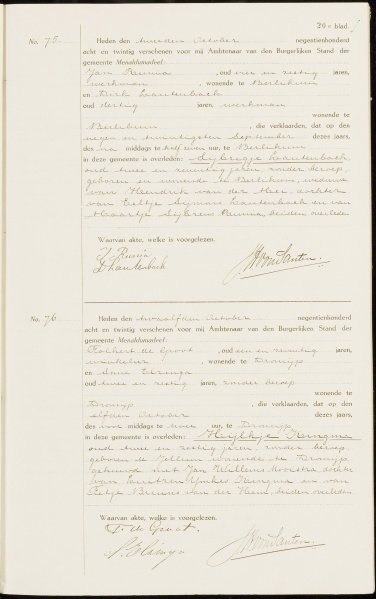 20ste blad.
No. 75
Heden den tweeden October negentienhonderd
acht en twintig verschenen voor mij Ambtenaar van den Burgerlijken Stand der
gemeente Menaldumadeel:
Jan , oud vier en zestig jaren,
werkman, wonende te Berlikum
en Dirk Lautenbach
oud zestig jaren, werkman
wonende te
Berlikum, die verklaarden, dat op den
negen en twintigsten September dezes jaars,
des na middags te half een uur, te Berlikum
in deze gemeente is overleden: Lautenbach,
oud twee en zeventig jaren, zonder beroep,
geboren en wonende te Berlikum, weduwe
van Hendrik van der Meer, dochter
van Eeltje Symons Lautenbach en van
, beiden overleden
Waarvan akte, welke is voorgelezen.
D Lautenbach
No. 76
Heden den twaalfden October negentienhonderd
acht en twintig verschenen voor mij Ambtenaar van den Burgerlijken Stand der
gemeente Menaldumadeel:
Folkert de Groot, oud een en zeventig jaren,
winkelier, wonende te Dronrijp
en
oud twee en zestig jaren, zonder beroep
wonende te
Dronrijp, die verklaarden, dat op den
elfden October dezes jaars,
des voor middags te twee uur, te Dronrijp
in deze gemeente is overleden: Heyltje Kingma
oud twee en zestig jaren, zonder beroep,
geboren te wonende te Dronrijp
gehuwd met Jan Willems Hoekstra dochter
van Kingma en van
Eeltje van der , beiden overleden
Waarvan akte, welke is voorgelezen.
F. de Groot